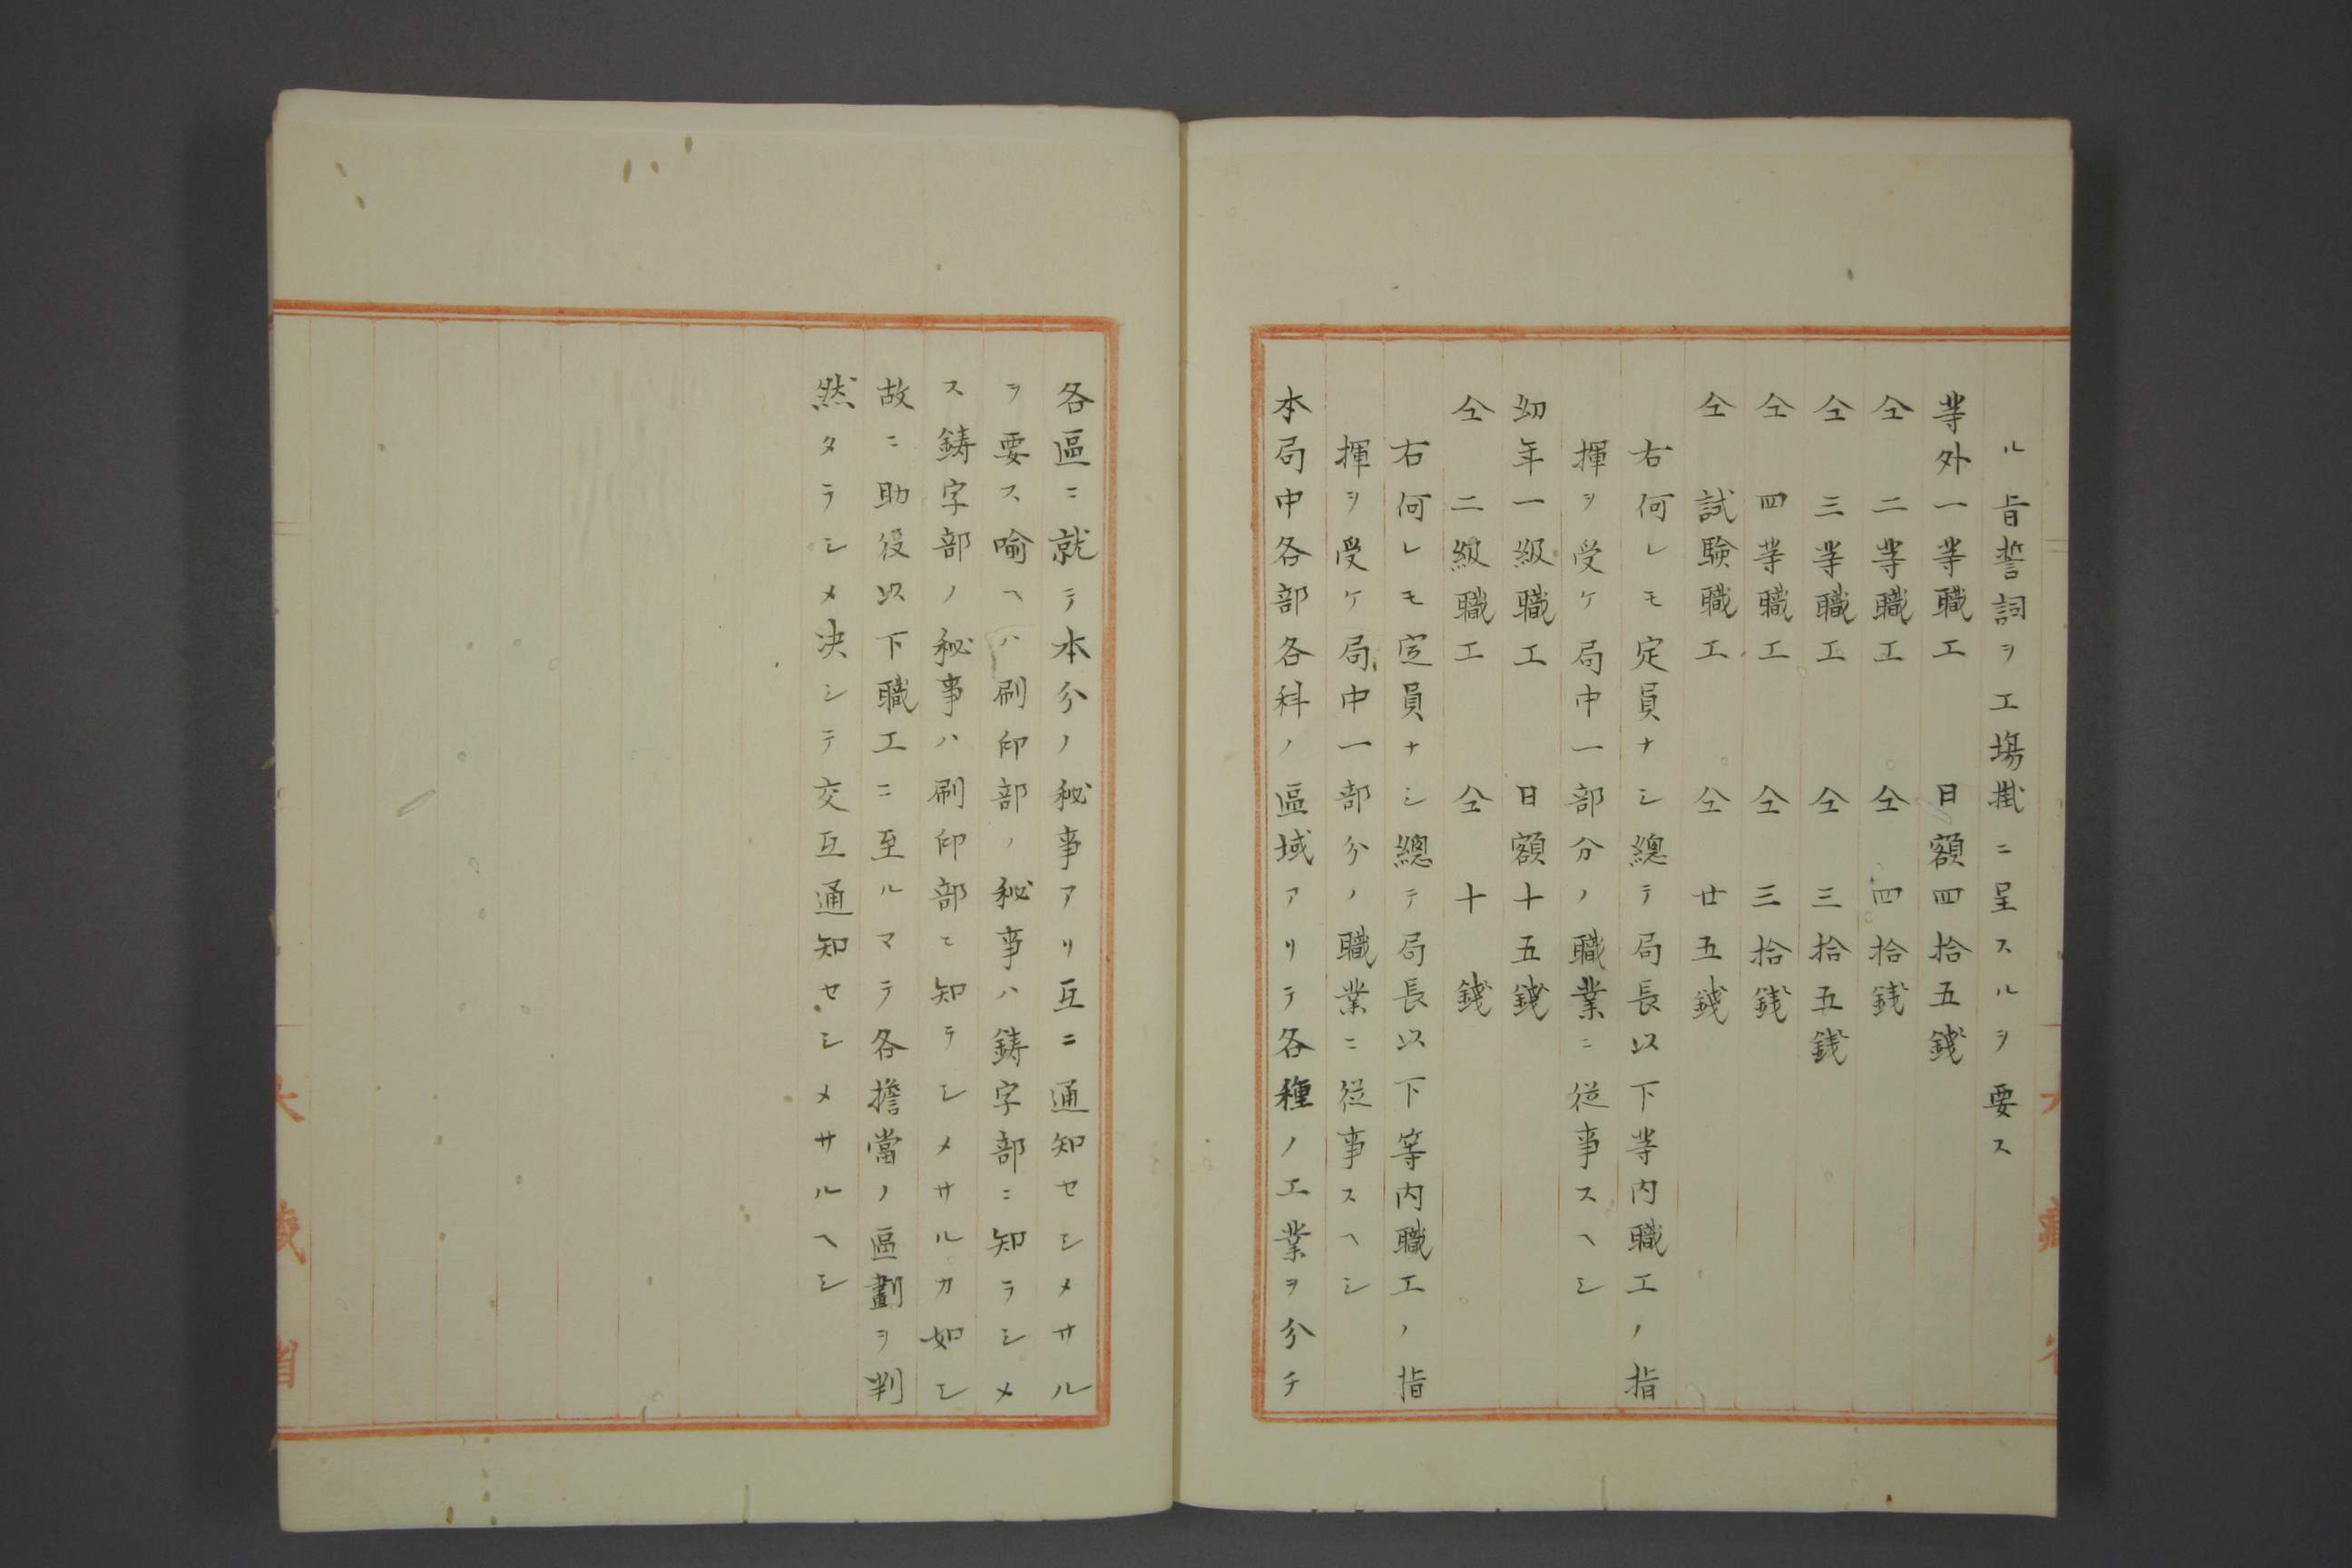 ル旨誓詞ヲ工塲掛ニ呈スルヲ要ス
等外一等職工 日額四拾五錢
仝 二等職工 仝 四拾銭
仝 三等職工 仝 三拾五銭
仝 四等職工 仝 三拾銭
仝 試験職工 仝 廿五錢
右何レモ定員ナシ總テ局長以下等内職工ノ指
揮ヲ受ケ局中一部分ノ職業ニ從事スヘシ
幼年一級職工 日額十五錢
仝 二級職工 仝 十錢
右何レモ定員ナシ總テ局長以下等内職工ノ指
揮ヲ受ケ局中一部分ノ職業ニ從事スヘシ
本局中各部各科ノ區域アリテ各種ノ工業ヲ分チ
各區ニ就テ本分ノ秘事アリ互ニ通知セシメサル
ヲ要ス喩ヘハ刷印部ノ秘事ハ鋳字部ニ知ラシメ
ス鋳字部ノ秘事ハ刷印部ニ知ラシメサルカ如シ
故ニ助役以下職工ニ至ルマテ各擔當ノ區劃ヲ判
然タラシメ決シテ交互通知セシメサルヘシ
大藏省